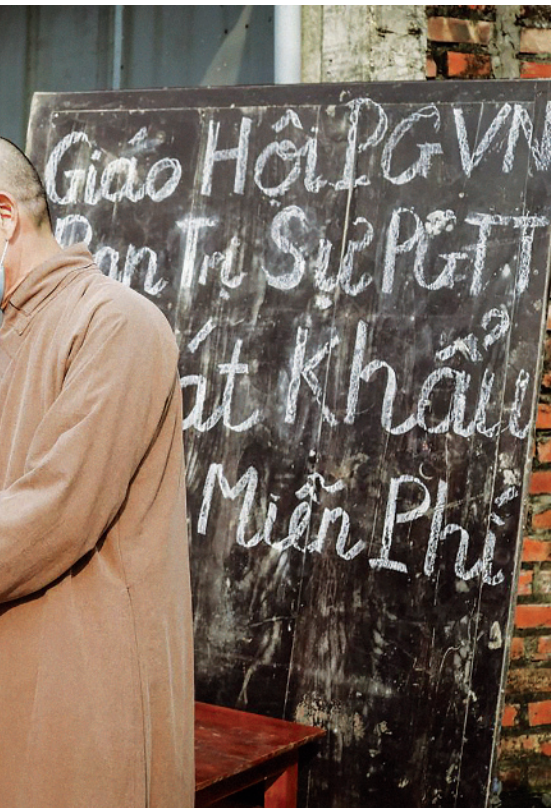 Giáo Hội PGVN
Ban Trị Sự PGTT
át Khẩu
Miễn Phí